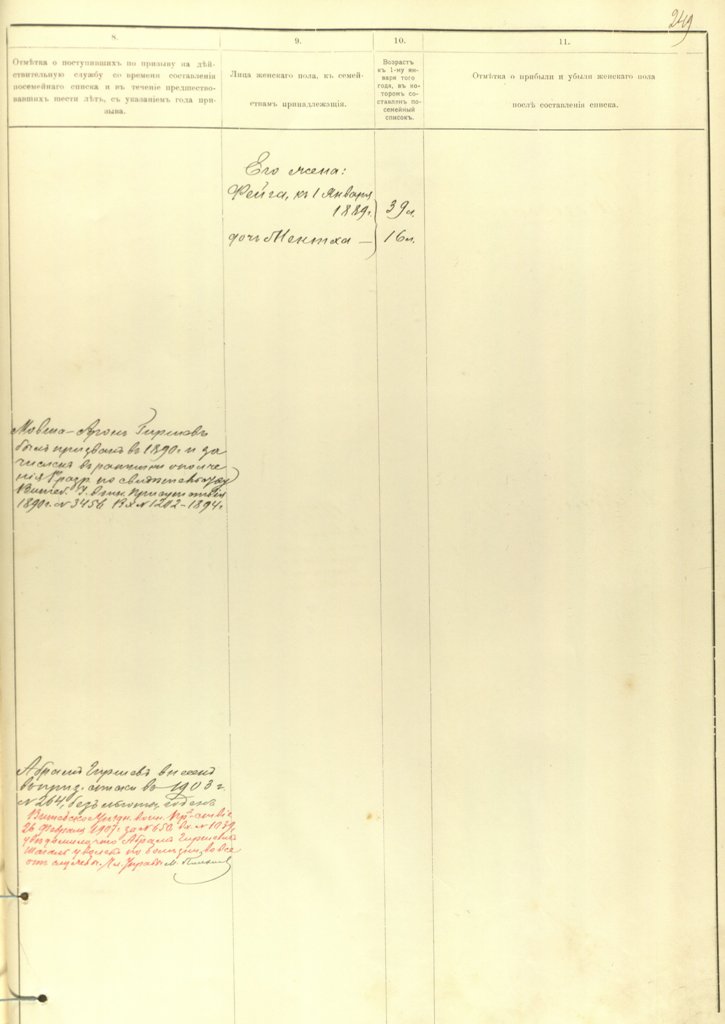 249
8.
9.
10.
11.
Отмѣтка о поступившихъ по призыву на дѣй-
ствительную службу со времени составленія
посемейнаго списка и въ теченіе предшество-
вавшихъ шести лѣтъ, съ указаніемъ года при-
зыва.
Лица женскаго пола, къ семей-
ствамъ принадлежащія.
Возрастъ
къ 1-му ян-
варя того
года, въ ко-
торомъ со-
ставленъ по-
семейный
списокъ.
Отмѣтка о прибыли и убыли женскаго пола
послѣ составленія списка.
Его жена:
Фейга, къ 1 Января
1889г. 39л.
дочь Ментха — 16л.
Мовша-Аронъ Гиршовъ
былъ призванъ въ 1890г. и за
численъ въ ратники ополче
нія 1 разр. по свидѣтельству
Витеб. У. воин. присутствія
1890г. № 3456 Вх № 1202-1894г.
Абрамъ Гиршевъ внесенъ
въ приз. списки въ 1903 г.
№ 264, безъ льготы,
Витебское Уѣздн. воин. Пр-ствіе
26 Февраля 1907г. за № 650 вх № 1039,
увѣдомило, что Абрамъ Гиршевъ
Шагалъ уволенъ по болѣзни вовсе
отъ службы. Чл. Управы М.